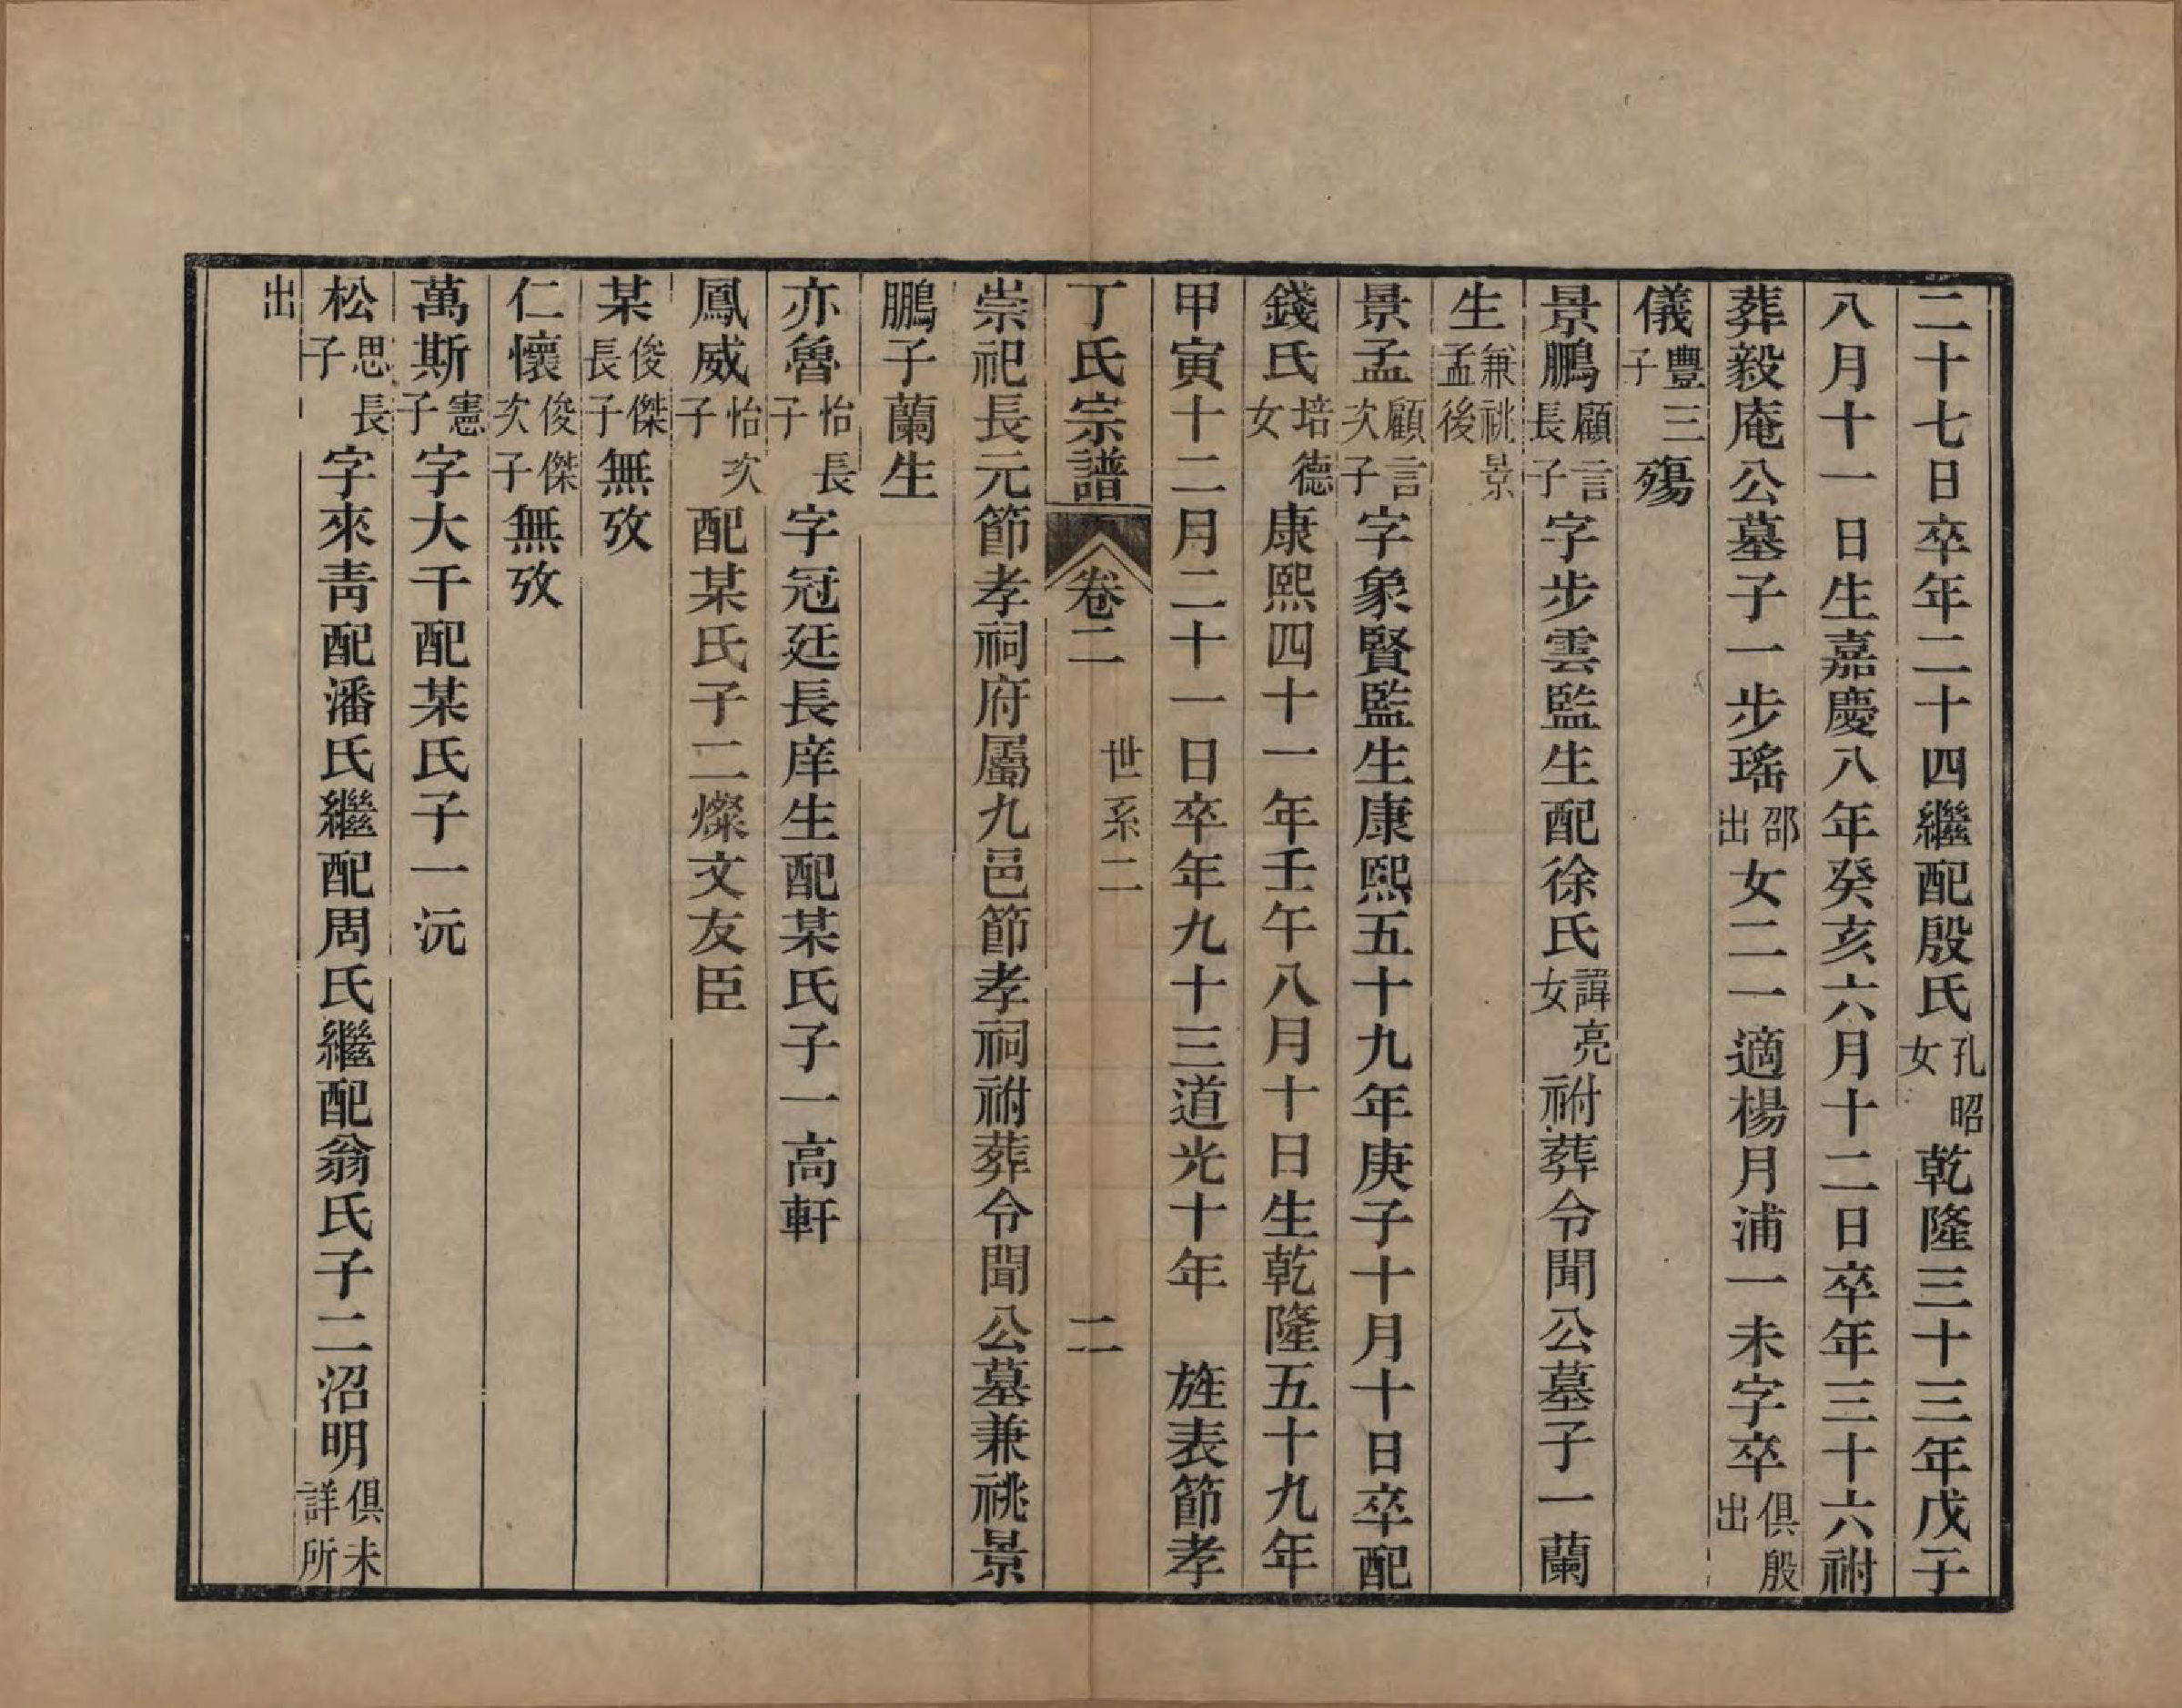 二十七日卒年二十四繼配殷氏孔昭女乾隆三十三年戊子
八月十一日生嘉慶八年癸亥六月十二日卒年三十六祔
葬毅庵公墓子一步瑤邵出女二一適楊月浦一未字卒俱殷出
儀豐三子殤
景鵬顧言長子字步雲監生配徐氏諱亮女祔葬令聞公墓子一蘭
生兼祧景孟後
景孟顧言次子字象賢監生康熙五十九年庚子十月十日卒配
錢氏培德女康熙四十一年壬午八月十日生乾隆五十九年
甲寅十二月二十一日卒年九十三道光十年　旌表節孝
丁氏宗譜　卷二　世系二　二
崇祀長元節孝祠府屬九邑節孝祠祔葬令聞公墓兼祧景
鵬子蘭生
亦魯怡長子字冠廷長庠生配某氏子一高軒
鳳威怡次子配某氏子二燦文友臣
某俊傑長子無攷
仁懷俊傑次子無攷
萬斯憲子字大千配某氏子一沅
松思長子字來青配潘氏繼配周氏繼配翁氏子二沼明俱未詳所
出